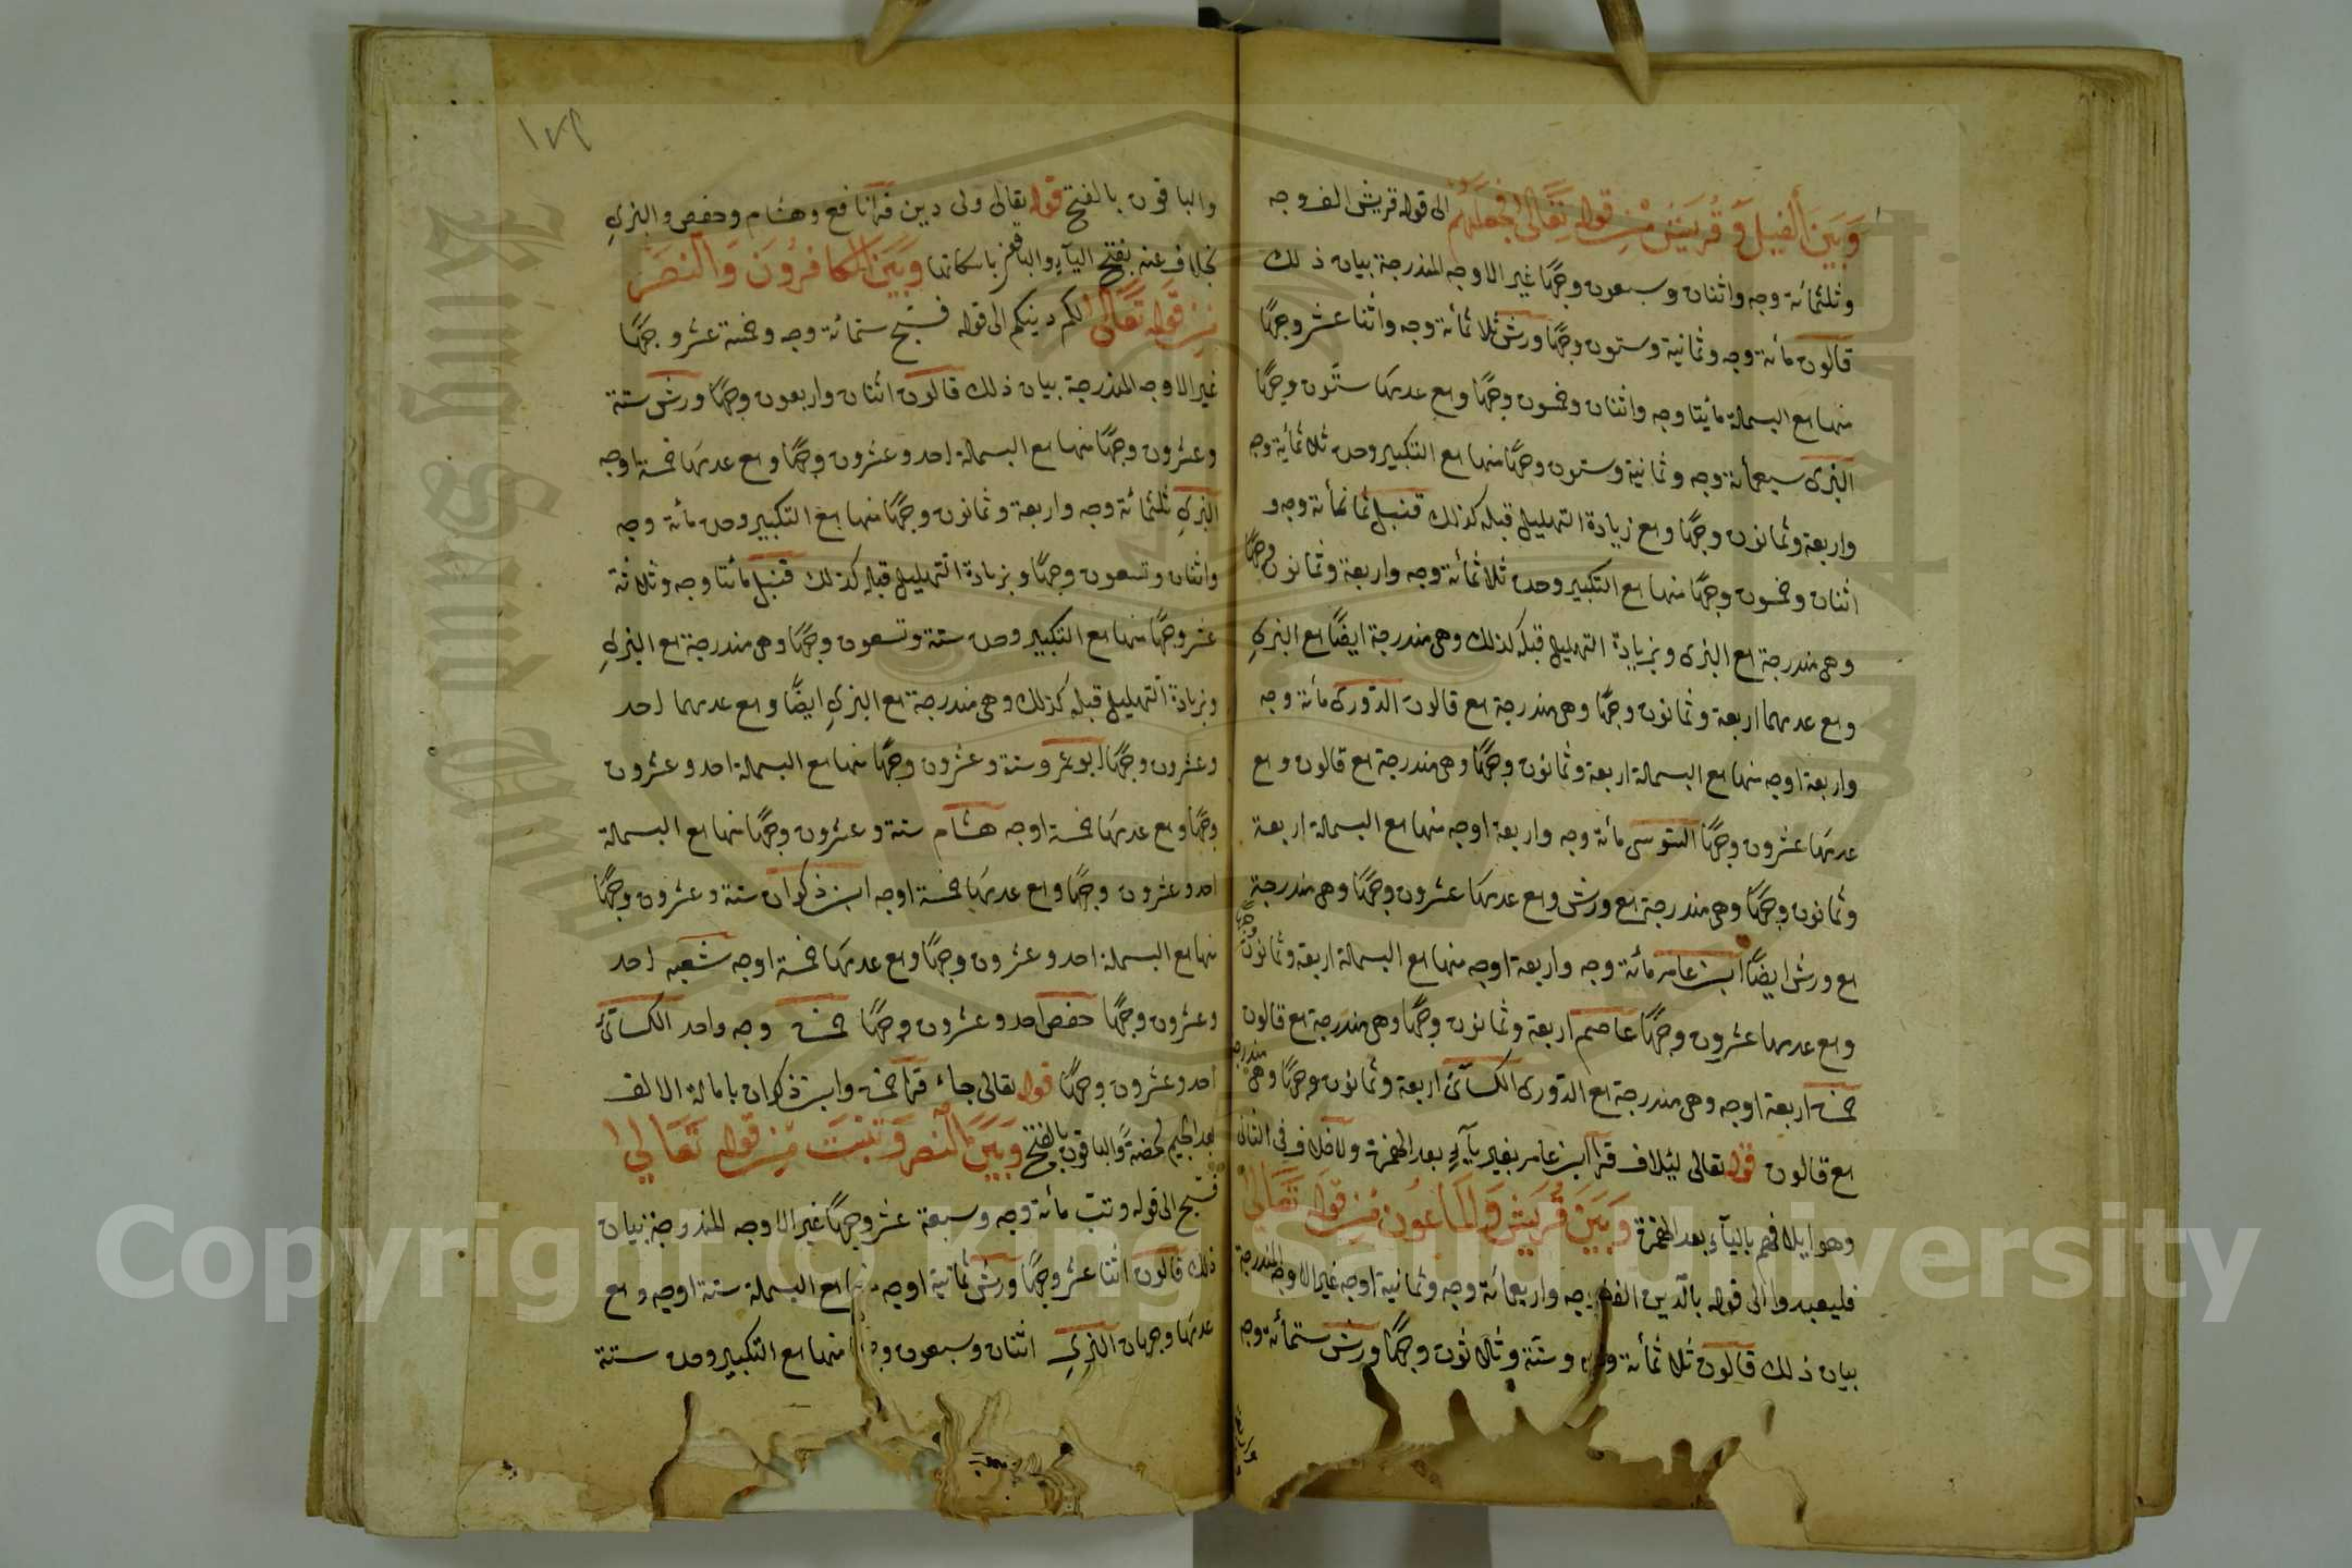 وبين الفيل وقريش من قوله تعالى فجعلهم الى قوله قريش الف وجه
وثلثمائة وجه واثنان وسبعون وجهًا غير الاوجه المندرجة بيان ذلك
قالون مائة وجه وثمانية وستون وجهًا ورش ثلاثمائة وجه واثنا عشر وجهًا
منها مع البسملة مائتا وجه واثنان وخمسون وجهًا ومع عدمها ستون وجهًا
البزى سبعمائة وجه وثمانية وستون وجهًا منها مع التكبير وحده ثلاثمائة وجه
واربعة وثمانون وجهًا ومع زيادة التهليل قبله كذلك قنبل ثمانمائة وجه و
اثنان وخمسون وجهًا منها مع التكبير وحده ثلاثمائة وجه واربعة وثمانون وجهًا
وهى مندرجة مع البزى وبزيادة التهليل قبله كذلك وهى مندرجة ايضًا مع البزي
ومع عدمهما اربعة وثمانون وجهًا وهى مندرجة مع قالون الدورى مائة وجه
واربعة اوجه منها مع البسملة اربعة وثمانون وجهًا وهى مندرجة مع قالون ومع
عدمها عشرون وجهًا السوسى مائة وجه واربعة اوجه منها مع البسملة اربعة
وثمانون وجهًا وهى مندرجة مع ورش ومع عدمها عشرون وجهًا وهى مندرجة
مع ورش ايضًا ابن عامر مائة وجه واربعة اوجه منها مع البسملة اربعة وثمانون وجهًا
ومع عدمها عشرون وجهًا عاصم اربعة وثمانون وجهًا وهى مندرجة مع قالون
حمزه اربعة اوجه وهى مندرجة مع الدورى الكسآئى اربعة وثمانون وجهًا وهى مندرجه
مع قالون قوله تعالى ليئلاف قرا ابن عامر بغير يآء بعد الهمزة ولا خلاف فى الثانى
وهو ايلافهم باليآء بعد الهمزة وبين قريش والماعون من قوله تعالى
فليعبدوا الى قوله بالدين الف وجه واربعمائة وجه وثمانية اوجه غير الاوجه المندرجة
بيان ذلك قالون ثلاثمائة وجه وستة وثلاثون وجهًا ورش ستمائة وجه
واربعة
١٧٩
والباقون بالفتح قوله تعالى ولى دين قرا نافع وهشام وحفص والبزي
بخلاف عنه بفتح اليآء والباقون باسكانها وبين الكافرون والنصر
من قوله تعالى لكم دينكم الى قوله فسبح ستمائة وجه وخمسة عشر وجهًا
غير الاوجه المندرجة بيان ذلك قالون اثنان واربعون وجهًا ورش ستة
وعشرون وجهًا منها مع البسملة احد وعشرون وجهًا ومع عدمها خمسة اوجه
البزي ثلثمائة وجه واربعة وثمانون وجهًا منها مع التكبير وحده مائة وجه
واثنان وتسعون وجهًا وبزيادة التهليل قبله كذلك قنبل مائتا وجه وثلاثة
عشر وجهًا منها مع التكبير وحده ستة وتسعون وجهًا وهى مندرجة مع البزي
وبزيادة التهليل قبله كذلك وهى مندرجة مع البزي ايضًا ومع عدمهما احد
وعشرون وجهًا ابو عمرو ستة وعشرون وجهًا منها مع البسملة احد وعشرون
وجهًا ومع عدمها خمسة اوجه هشام ستة وعشرون وجهًا منها مع البسملة
احد وعشرون وجهًا ومع عدمها خمسة اوجه ابن ذكوان ستة وعشرون وجهًا
منها مع البسملة احد وعشرون وجهًا ومع عدمها خمسة اوجه شعبه احد
وعشرون وجهًا حفص احد وعشرون وجهًا حمزه وجه واحد الكسآئى
احد وعشرون وجهًا قوله تعالى جاء قرا حمزه وابن ذكوان بامالة الالف
بعد الجيم محضة والباقون بالفتح وبين النصر وتبت من قوله تعالى
فسبح الى قوله وتب مائة وجه وسبعة عشر وجهًا غير الاوجه المندرجة بيان
ذلك قالون اثنا عشر وجهًا ورش ثمانية اوجه منها مع البسملة ستة اوجه ومع
عدمها وجهان البزي اثنتان وسبعون وجهًا منها مع التكبير وحده ستة
Copyright © King Saud University
King Saud University